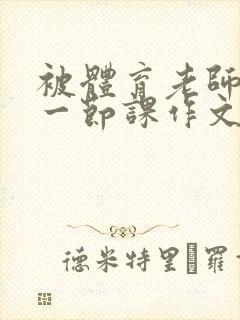 被體育老師
一節課作文
德米特里 羅